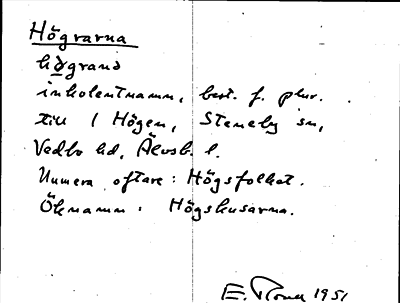 Högrarna
högrană
inkolentnamn, best. f. plur.
till 1 Högen, Steneby sn,
Vedbo hd, Älvsb. l.
Numera oftare: Högsfolket.
Öknamn: Högshusarna.
E. 1951